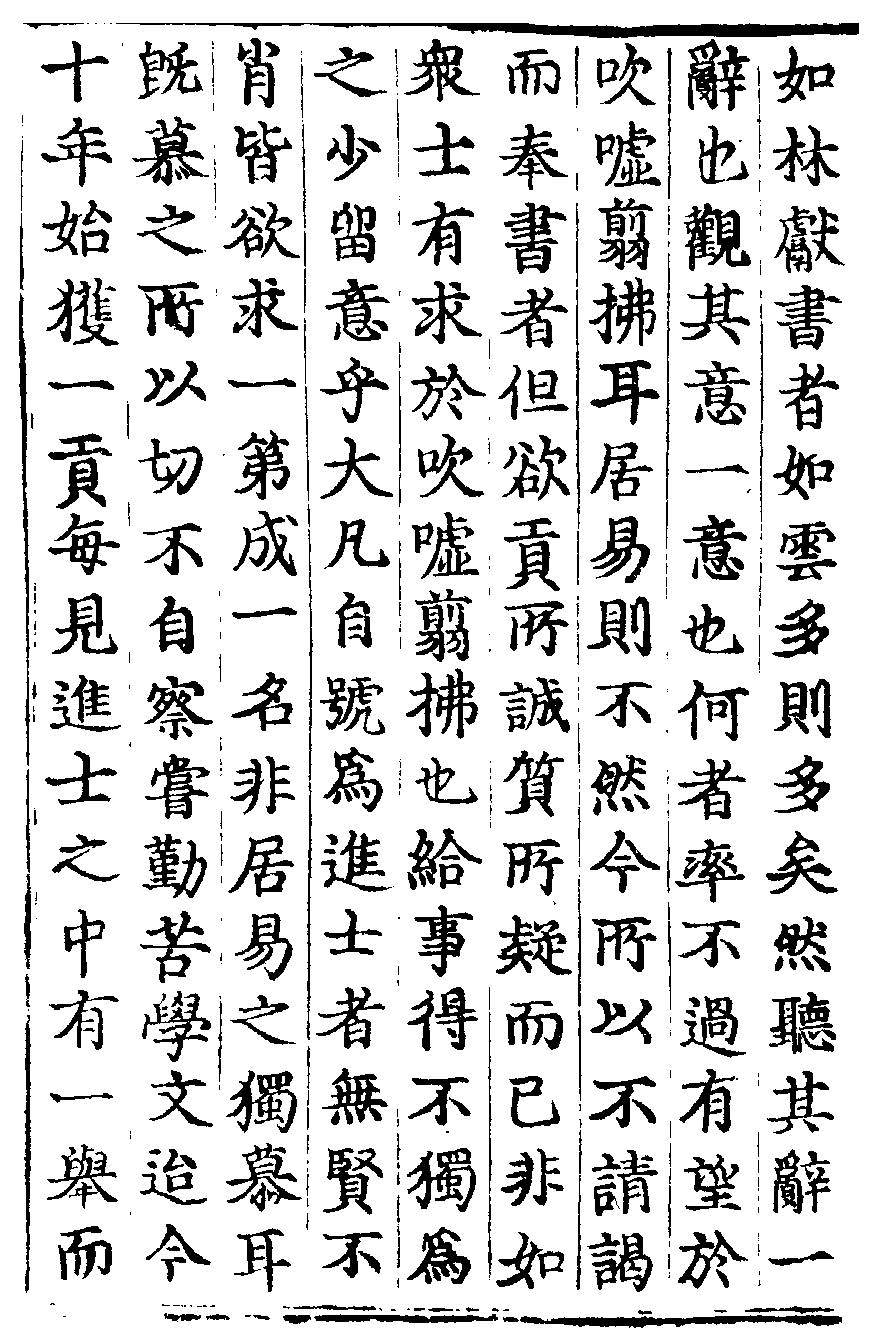 如林獻書者如雲多則多矣然聽其辭一
辭也觀其意一意也何者率不過有望於
吹噓翦拂耳居易則不然今所以不請謁
而奉書者但欲貢所誠質所疑而已非如
衆士有求於吹噓翦拂也給事得不獨爲
之少留意乎大凡自號爲進士者無賢不
肖皆欲求一第成一名非居易之獨慕耳
既慕之所以切不自察嘗勤苦學文迨今
十年始獲一貢每見進士之中有一舉而